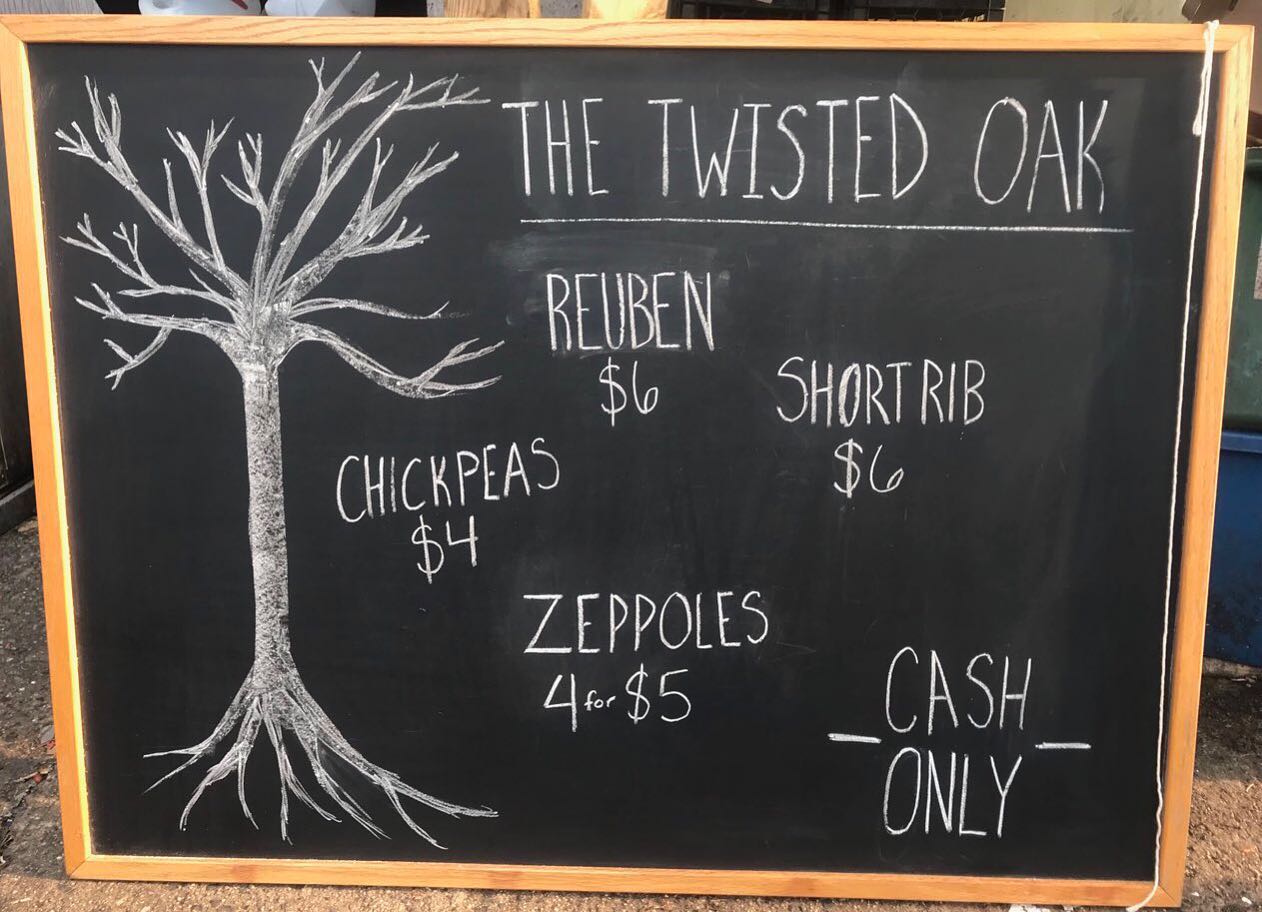 THE TWISTED OAK
REUBEN
$6
SHORT RIB
$6
CHICKPEAS
$4
ZEPPOLES
4 for $5
CASH
ONLY